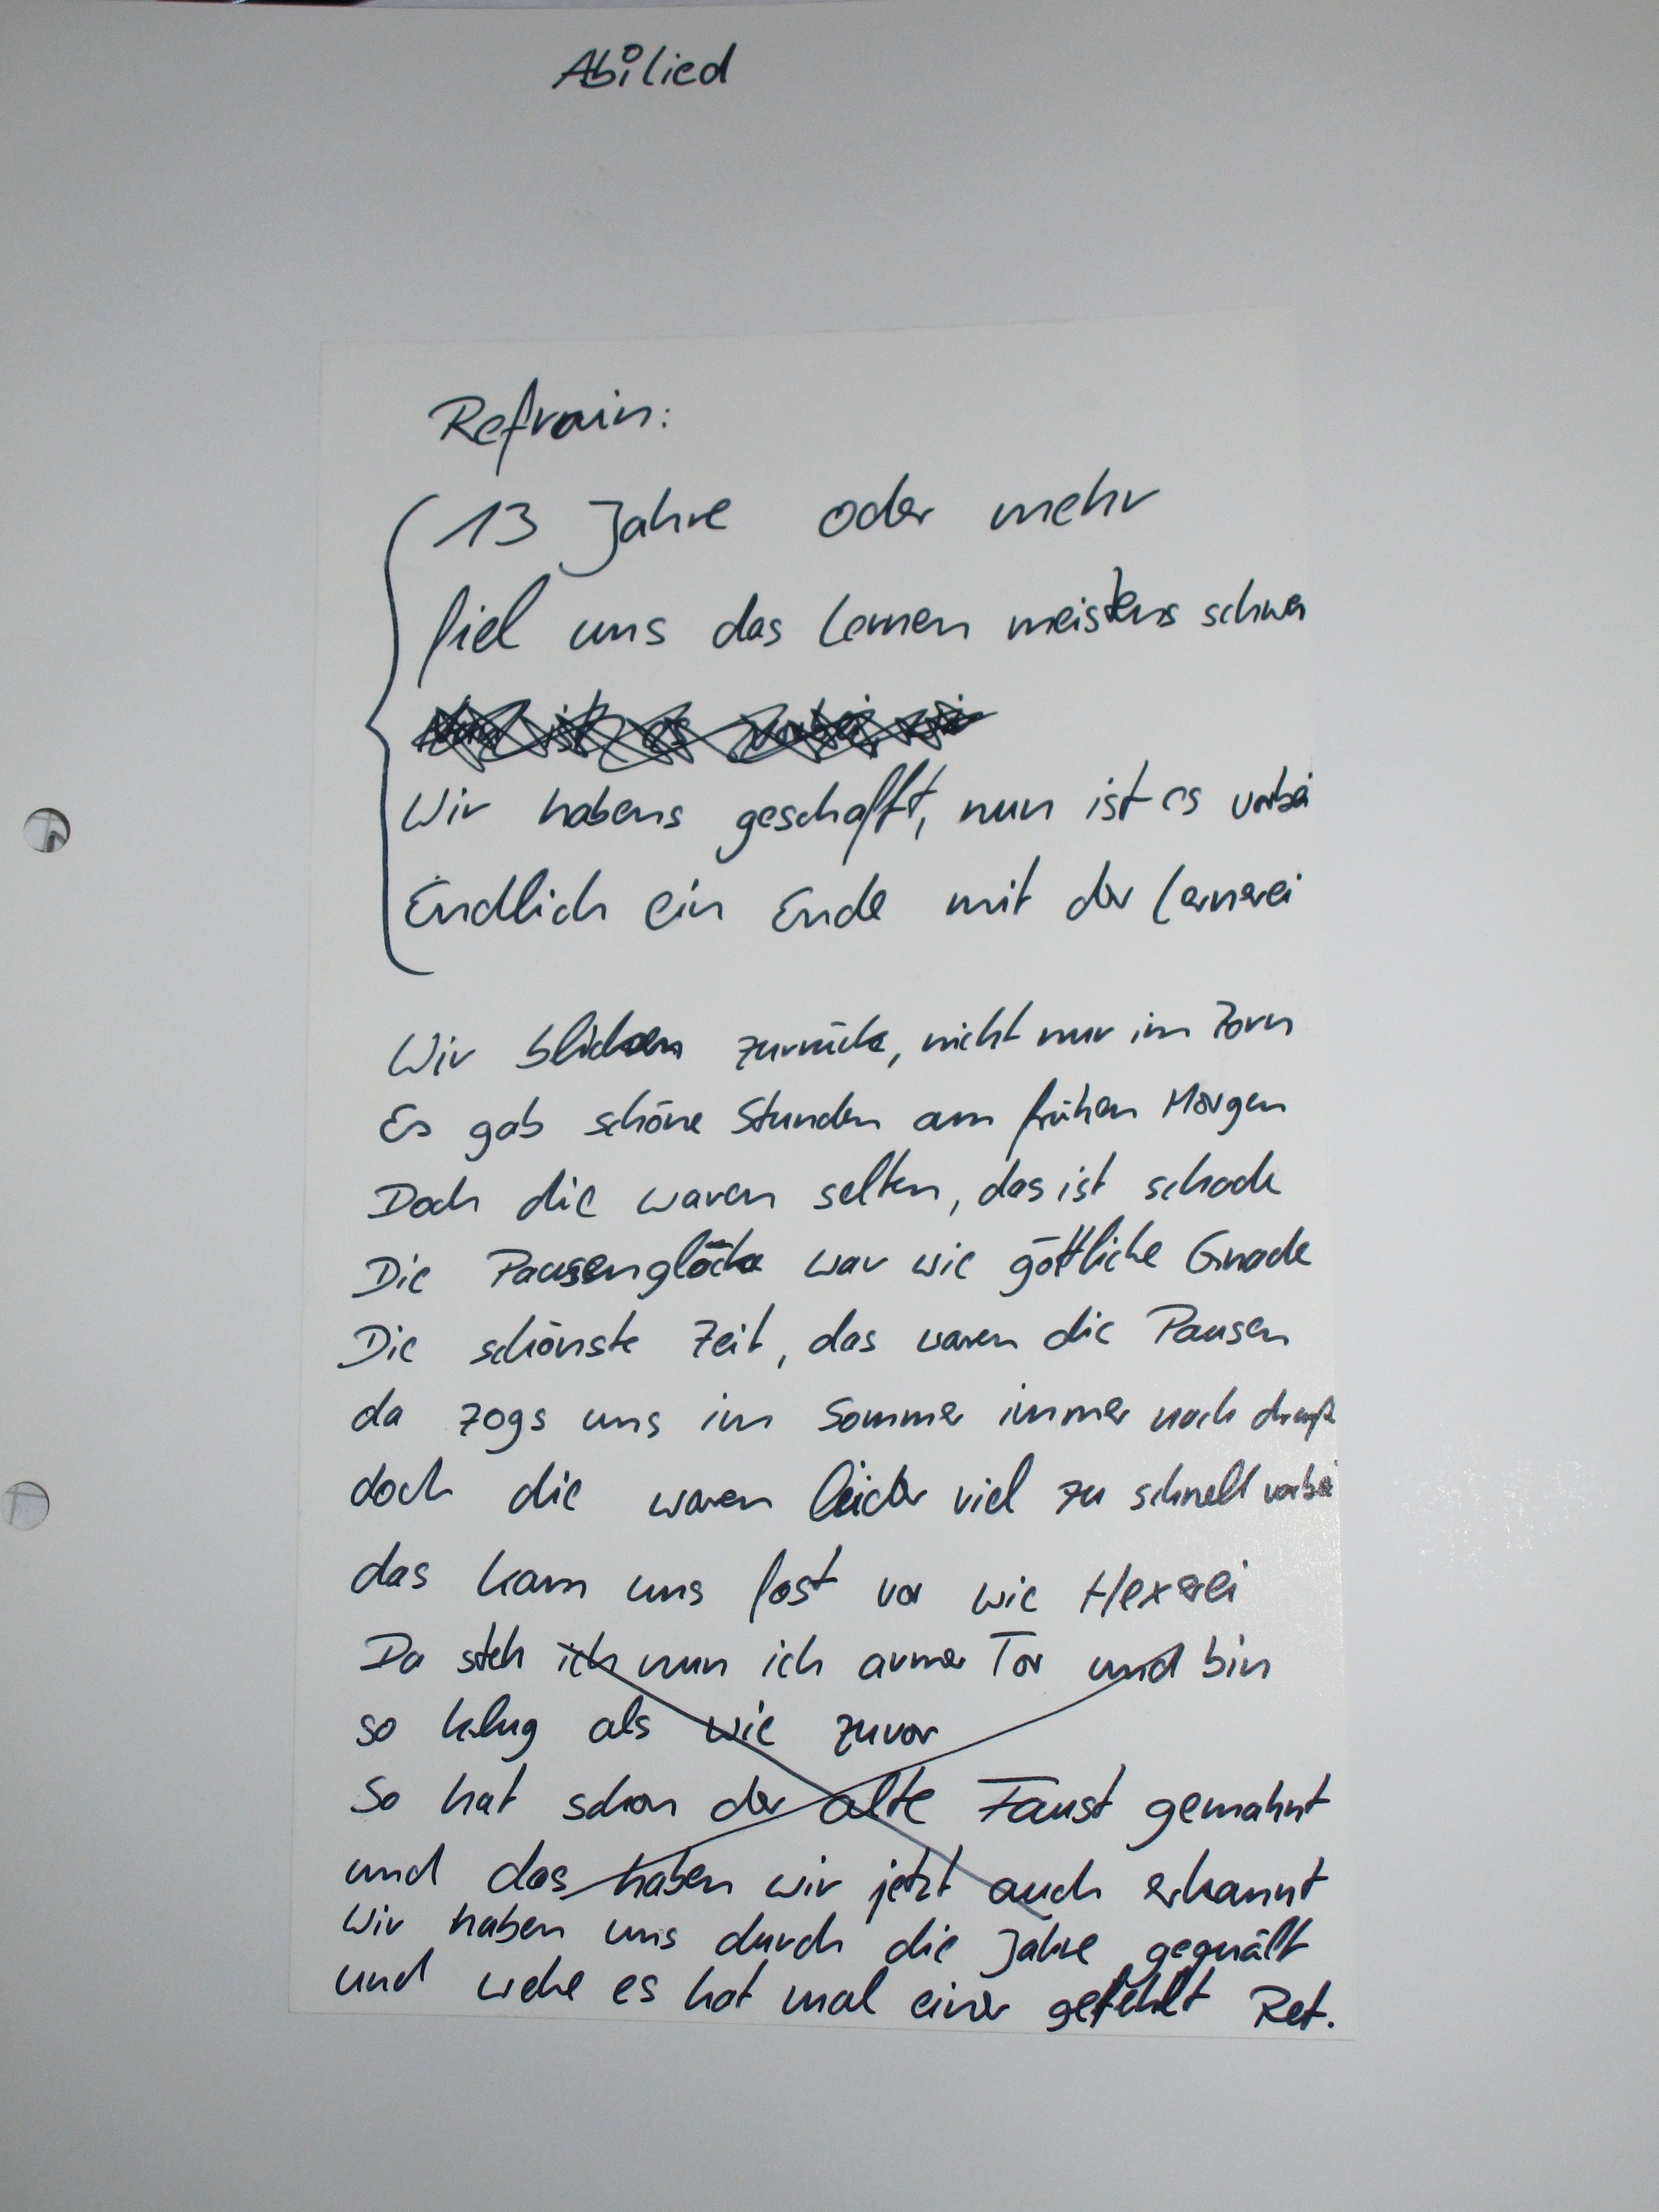 Abilied
Refrain:
13 Jahre oder mehr
fiel uns das Lernen meistens schwer
ist es vorbei
Wir habens geschafft, nun ist es vorbei
Endlich ein Ende mit der Lernerei
Wir blicken zurück, nicht nur im Zorn
Es gab schöne Stunden am frühen Morgen
Doch die waren selten, das ist schade
Die Pausenglocke war wie göttliche Gnade
Die schönste Zeit, das waren die Pausen
da zogs uns im Sommer immer nach
doch die waren leider viel zu schnell vorbei
das kam uns fast vor wie Hexerei
Da steh ich nun ich armer Tor und bin
so klug als wie zuvor
So hat schon der alte Faust gemahnt
und das haben wir jetzt auch erkannt
Wir haben uns durch die Jahre gequält
und wehe es hat mal einer gefehlt Ref.